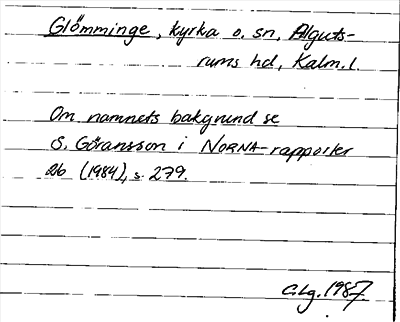 Glömminge, kyrka o. sn, Alguts-
rums hd, Kalm. l.
Om namnets bakgrund se
S. Göransson i NORNA-rapporter
26 (1984), s. 279.
C.Lg. 1987